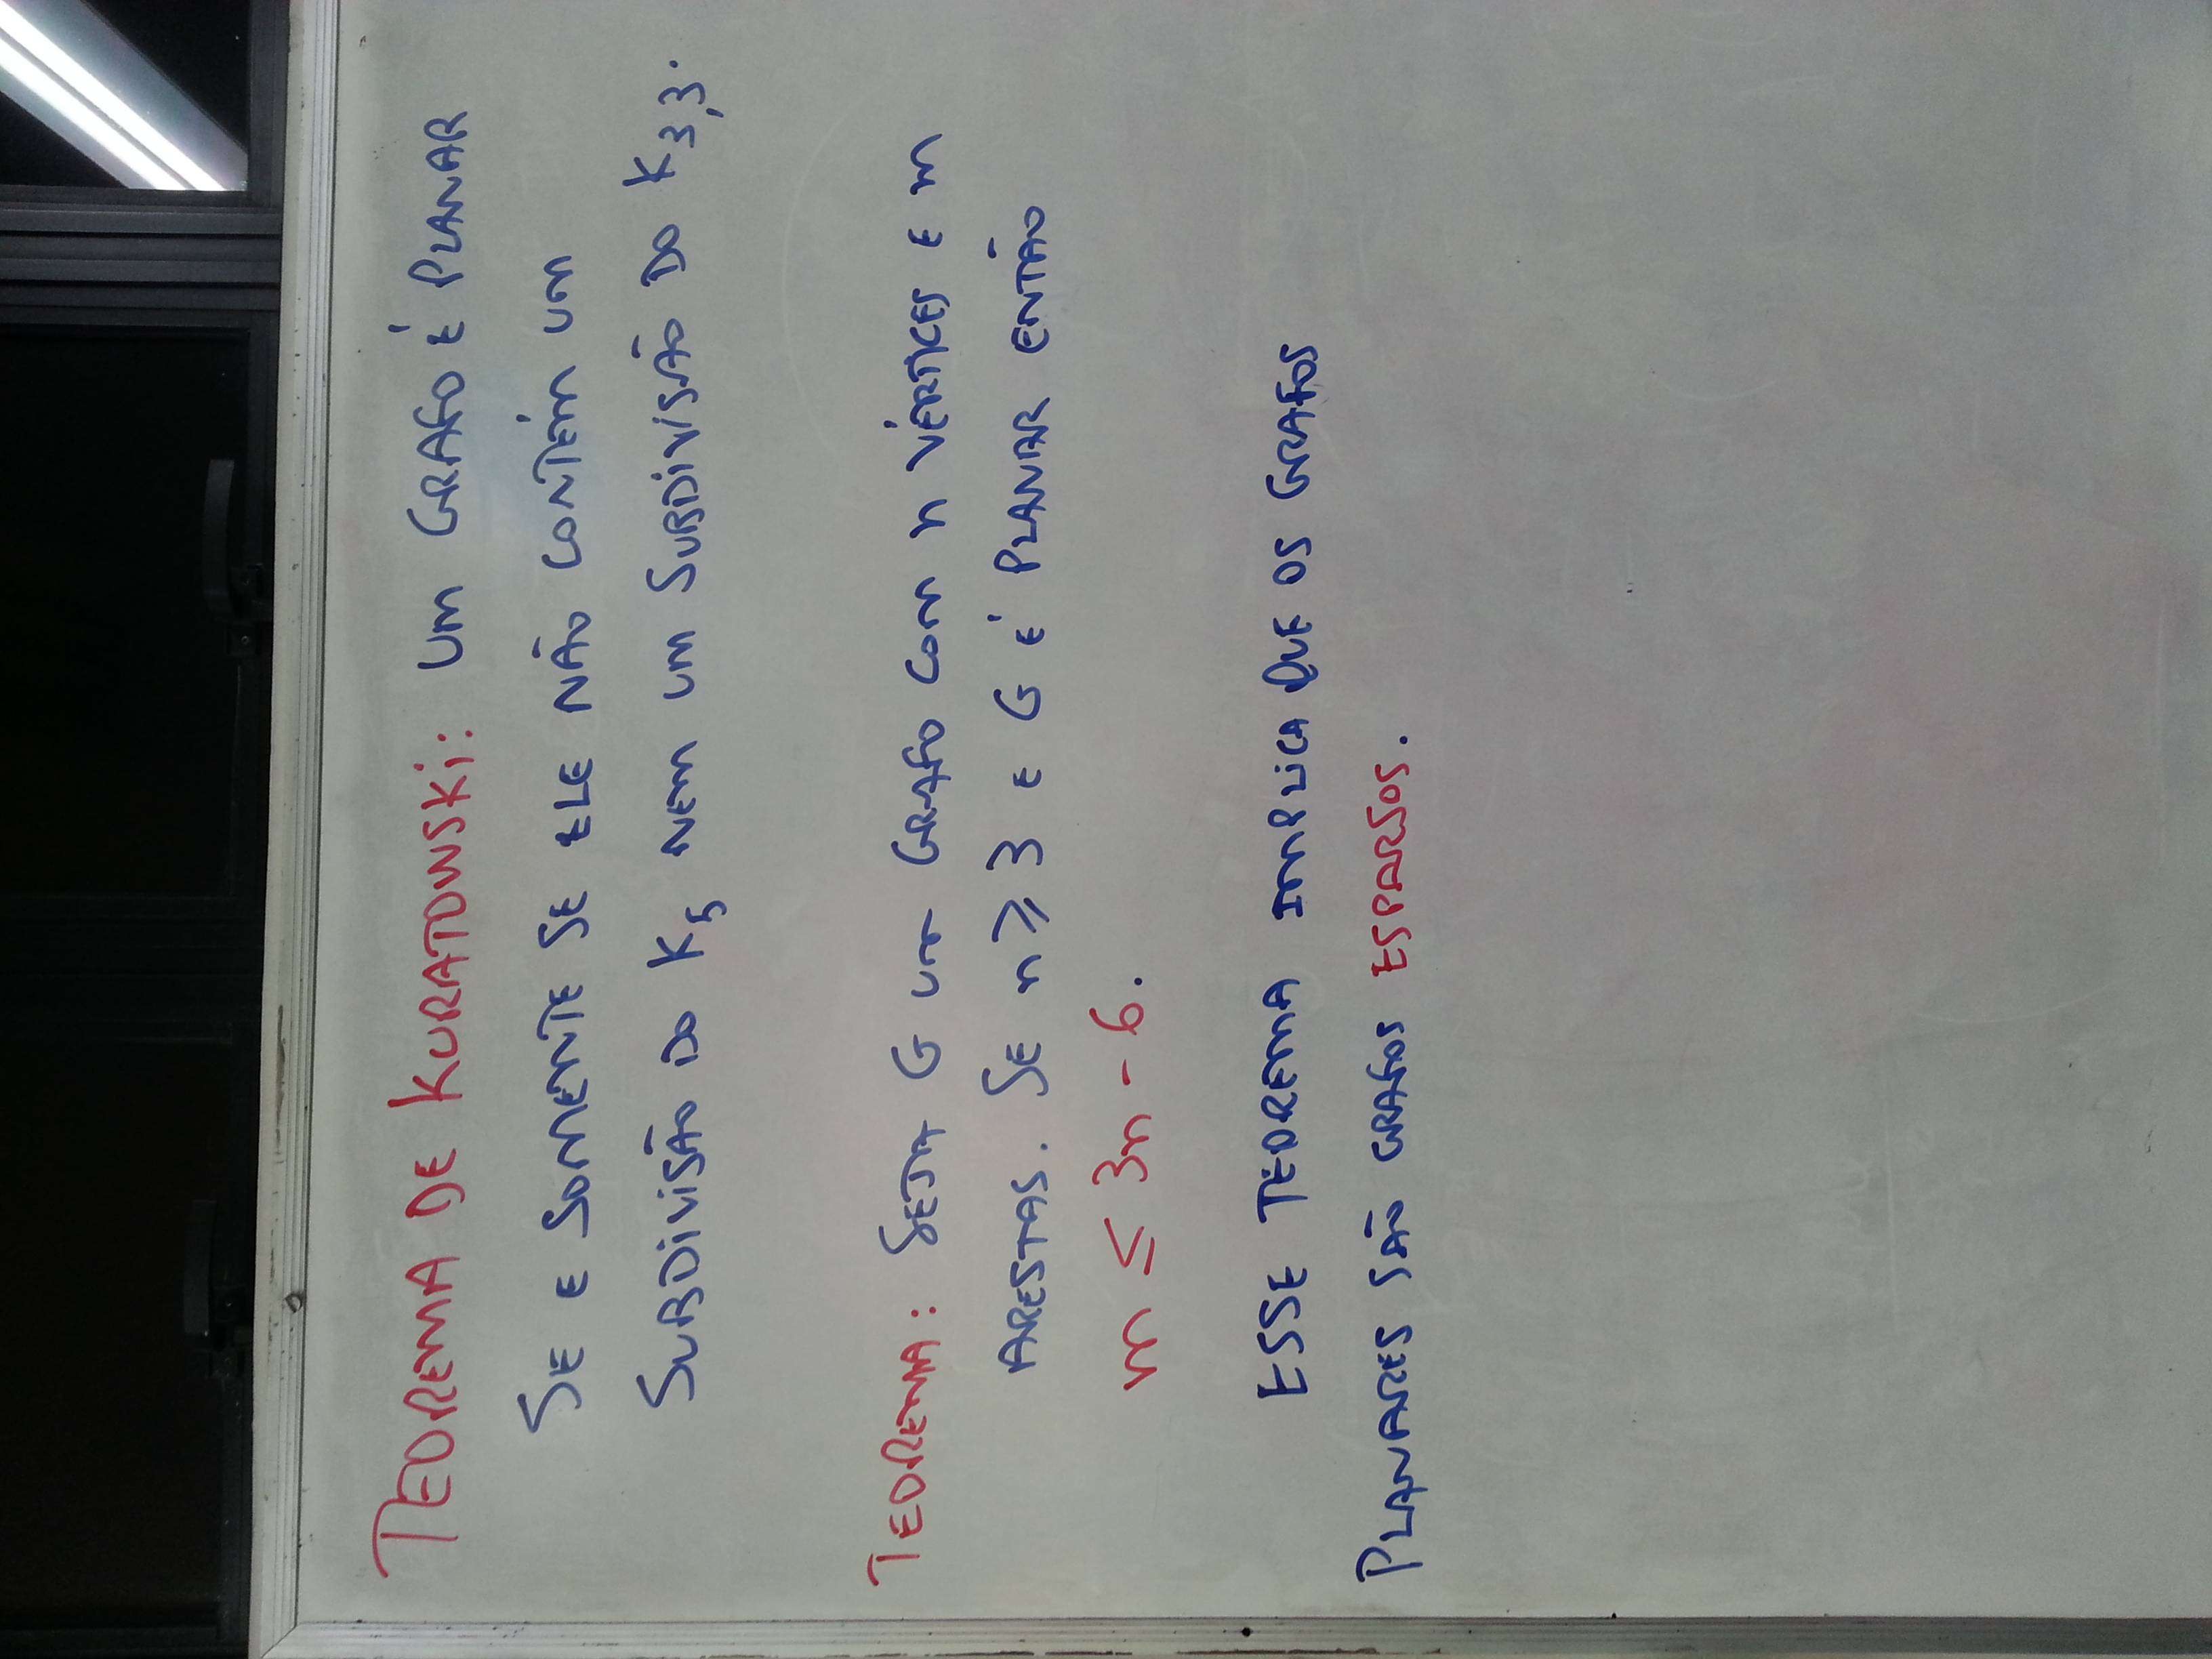 TEOREMA DE KURATOWSKI: UM GRAFO É PLANAR
SE E SOMENTE SE ELE NÃO CONTÉM UM
SUBDIVISÃO DO K5 NEM UM SUBDIVISÃO DO K3,3.
TEOREMA: SEJA G UM GRAFO COM n VÉRTICES E m
ARESTAS. SE n ≥ 3 E G É PLANAR ENTÃO
m ≤ 3n - 6.
ESSE TEOREMA IMPLICA QUE OS GRAFOS
PLANARES SÃO GRAFOS ESPARSOS.